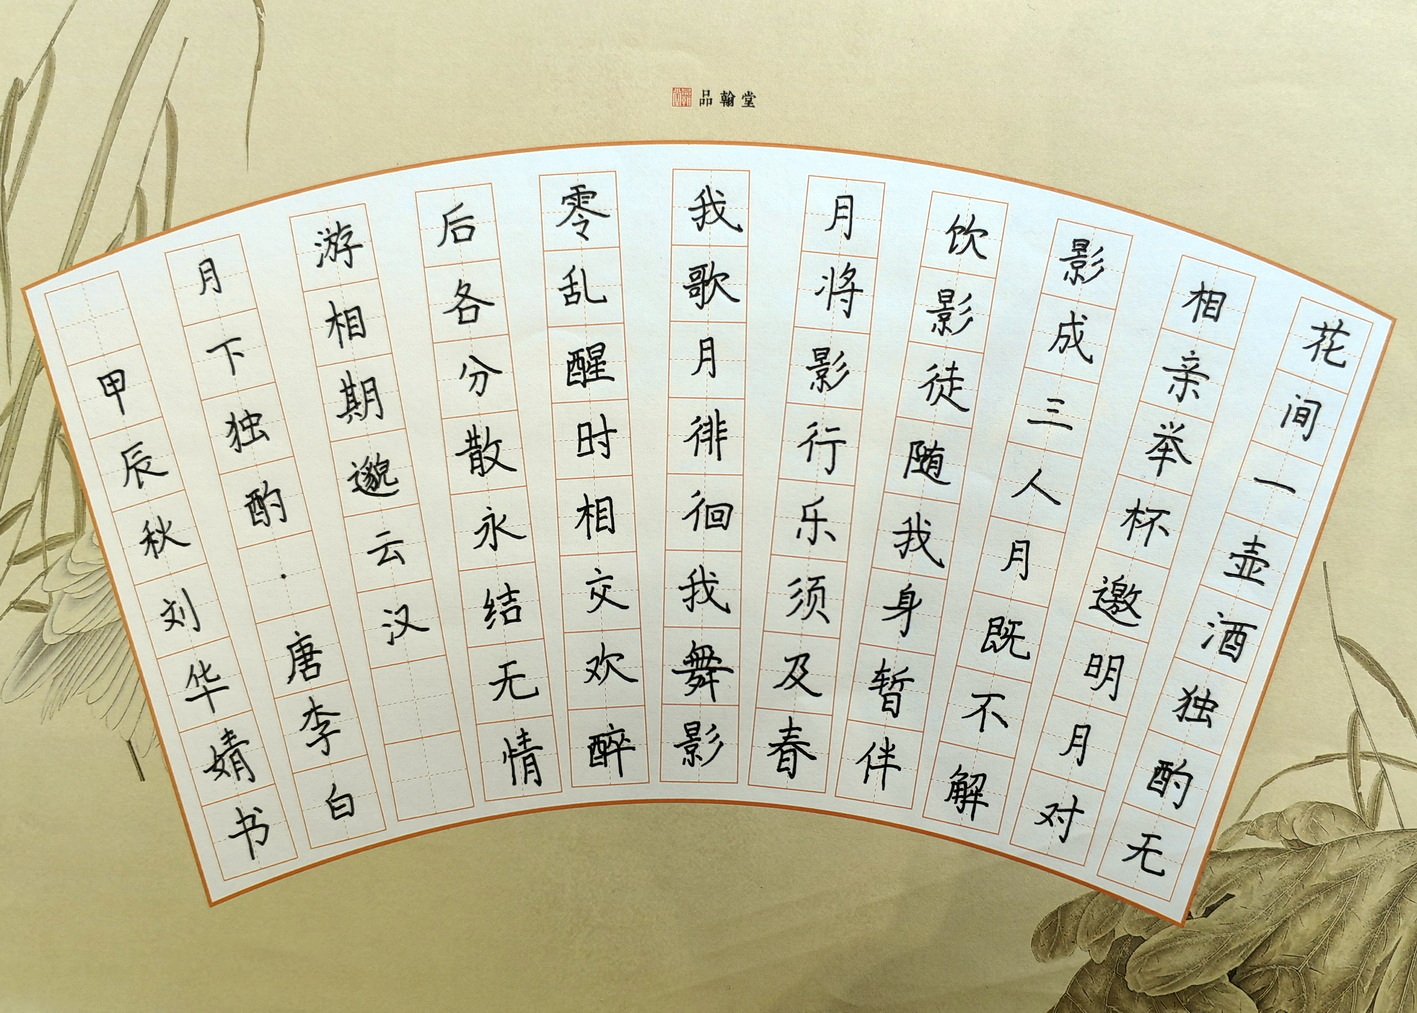 品翰堂
花间一壶酒独酌无
相亲举杯邀明月对
影成三人月既不解
饮影徒随我身暂伴
月将影行乐须及春
我歌月徘徊我舞影
零乱醒时相交欢醉
后各分散永结无情
游相期邈云汉
月下独酌·唐李白
甲辰秋刘华婧书